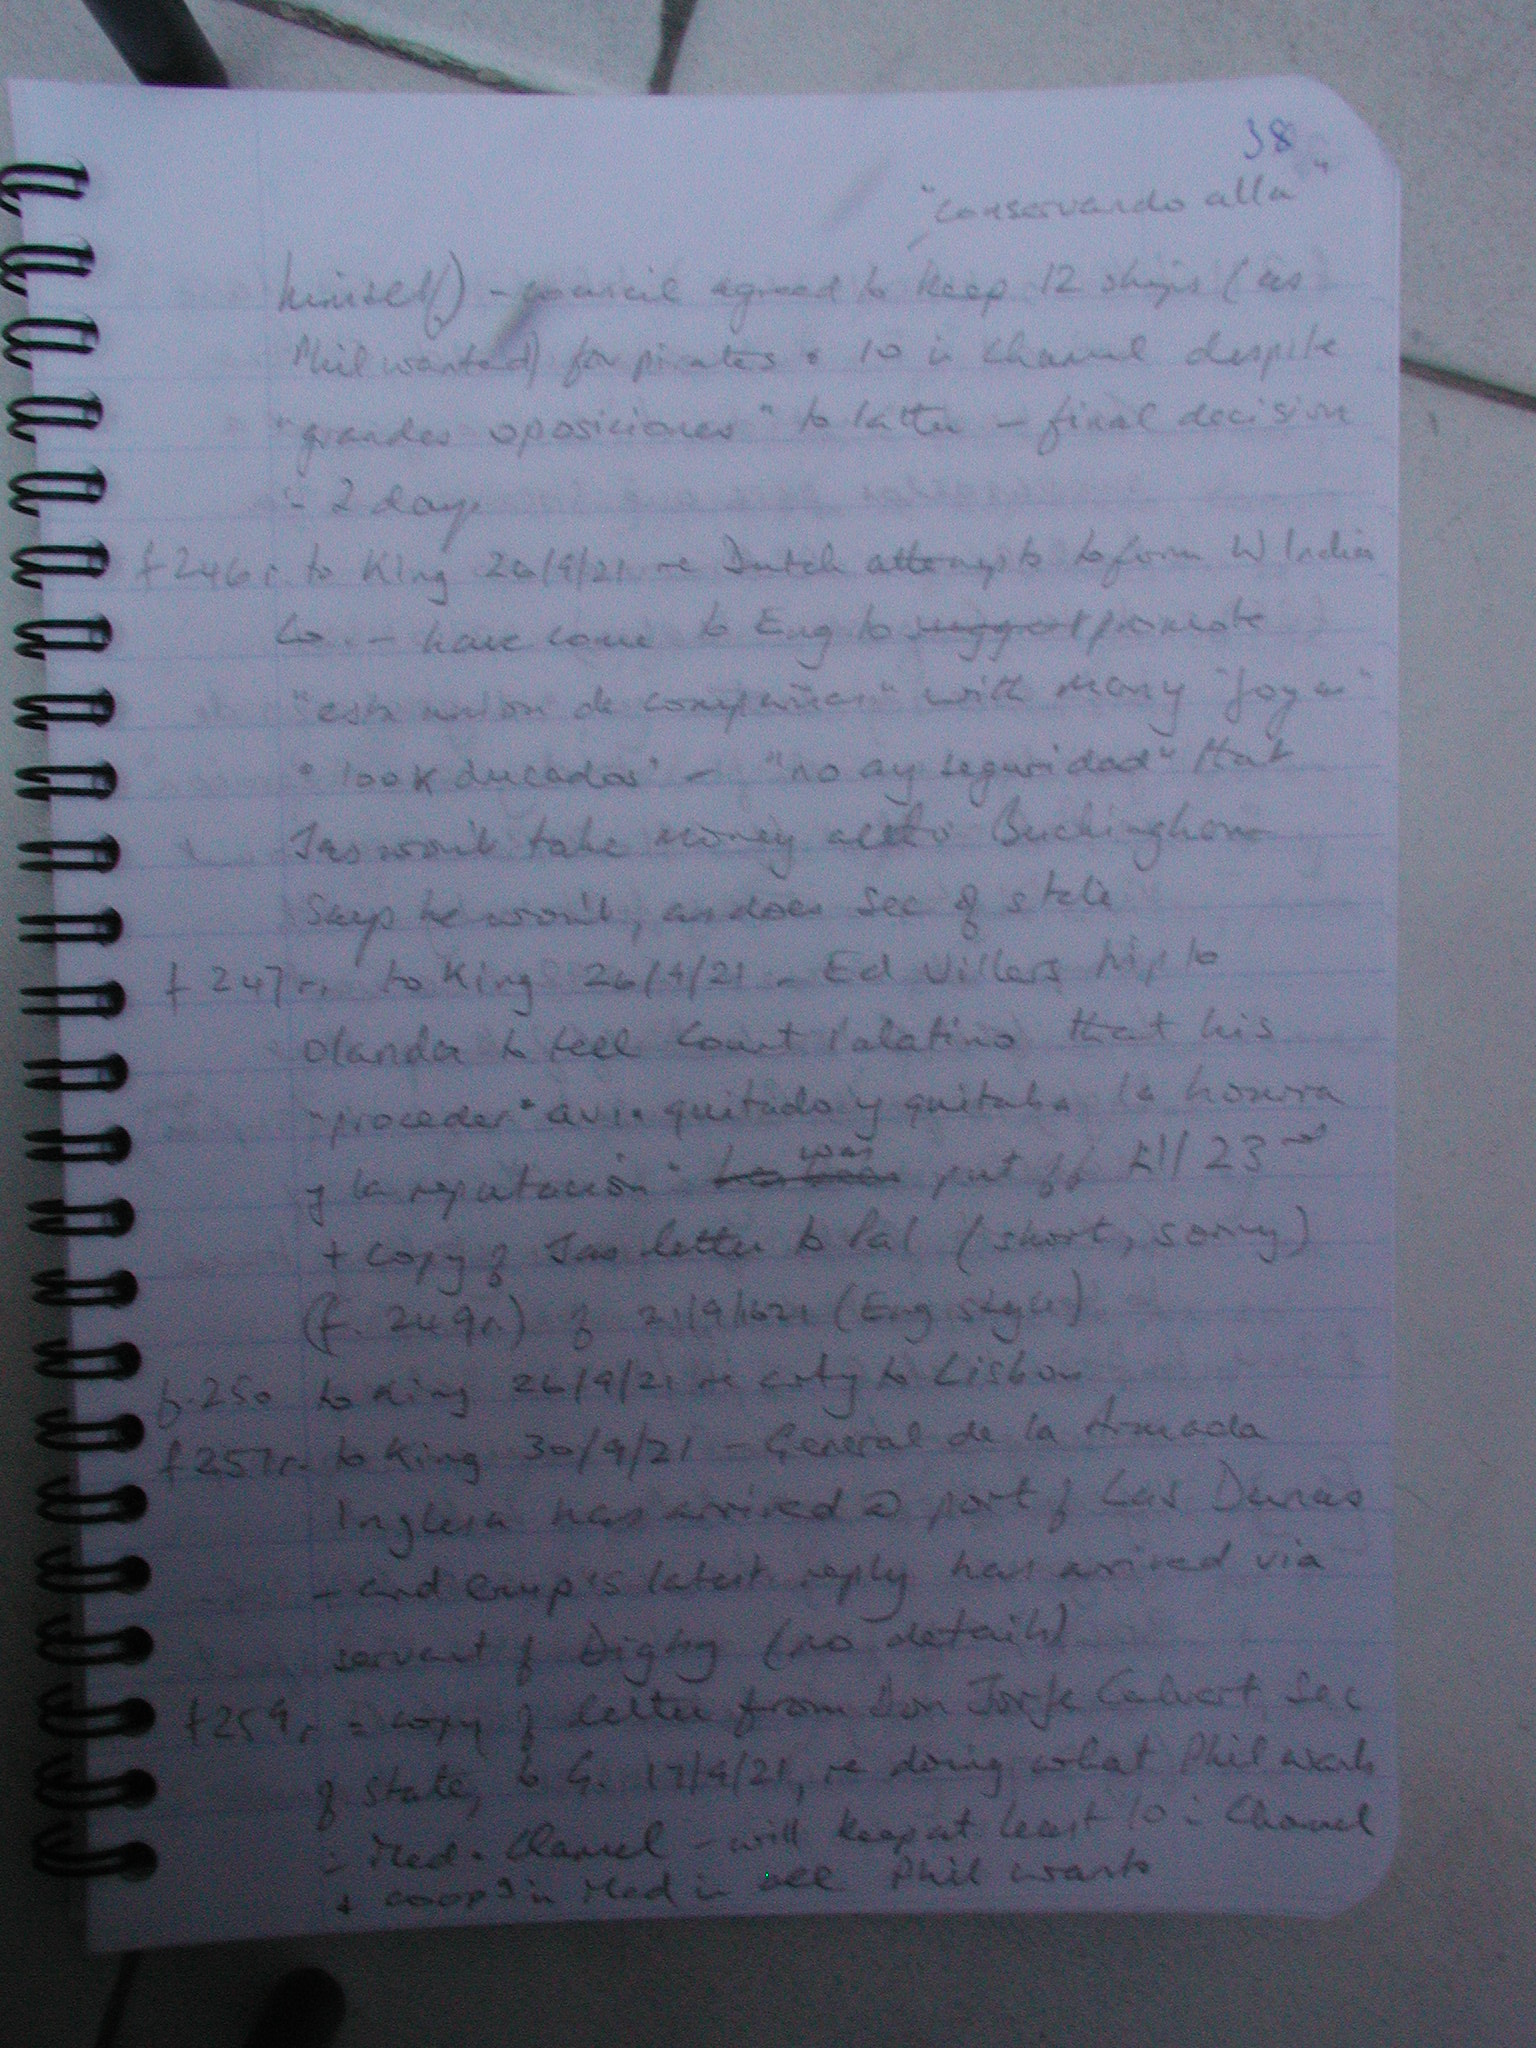 38
"conservando alla"
himself) - council agreed to keep 12 ships (as
Phil wanted) for pirates + 10 in Channel despite
"grandes oposiciones" to latter - final decision
in 2 days
f 246r. to King 26/9/21 re Dutch attempts to form W India
Co. - have come to Eng to support promote
"esta union de compañias" with many "joyas"
+ 100K ducados' - "no ay seguridad" that
Jas won't take money altho Buckingham
says he won't, as does Sec of state
f 247r. to King 26/9/21 - Ed Villers trip to
Olanda to tell Count Palatino that his
"proceder" avia quitado y quitaba la honrra
y la reputacion" has been was put off till 23rd
+ copy of Jas letter to Pal (short, sorry)
(f. 249r.) of 21/9/1621 (Eng style)
f.250 to King 26/9/21 re to Lisbon
f257r. to King 30/9/21 - General de la Armada
Inglesa has arrived @ port of Las Dunas
- and Emp's latest reply has arrived via
servant of Digby (no details)
f259r = copy of letter from Don Jorje Calvert, Sec
of State, to G. 17/9/21, re doing what Phil wants
in Med + Channel - will keep at least 10 in Channel
+ coop in Med in all Phil wants